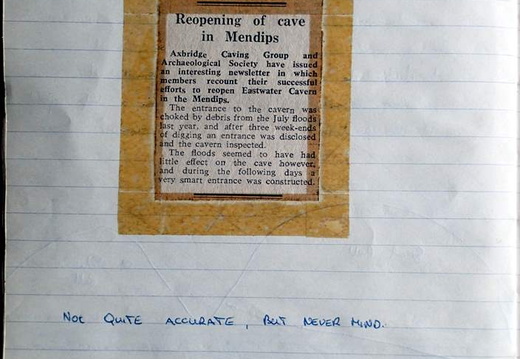 Reopening of cave
in Mendips
Axbridge Caving Group and
Archaeological Society have issued
an interesting newsletter in which
members recount their successful
efforts to reopen Eastwater Cavern
in the Mendips.
The entrance to the cavern was
choked by debris from the July floods
last year, and after three week-ends
of digging an entrance was disclosed
and the cavern inspected.
The floods seemed to have had
little effect on the cave however,
and during the following days a
very smart entrance was constructed.
NOT QUITE ACCURATE, BUT NEVER MIND.